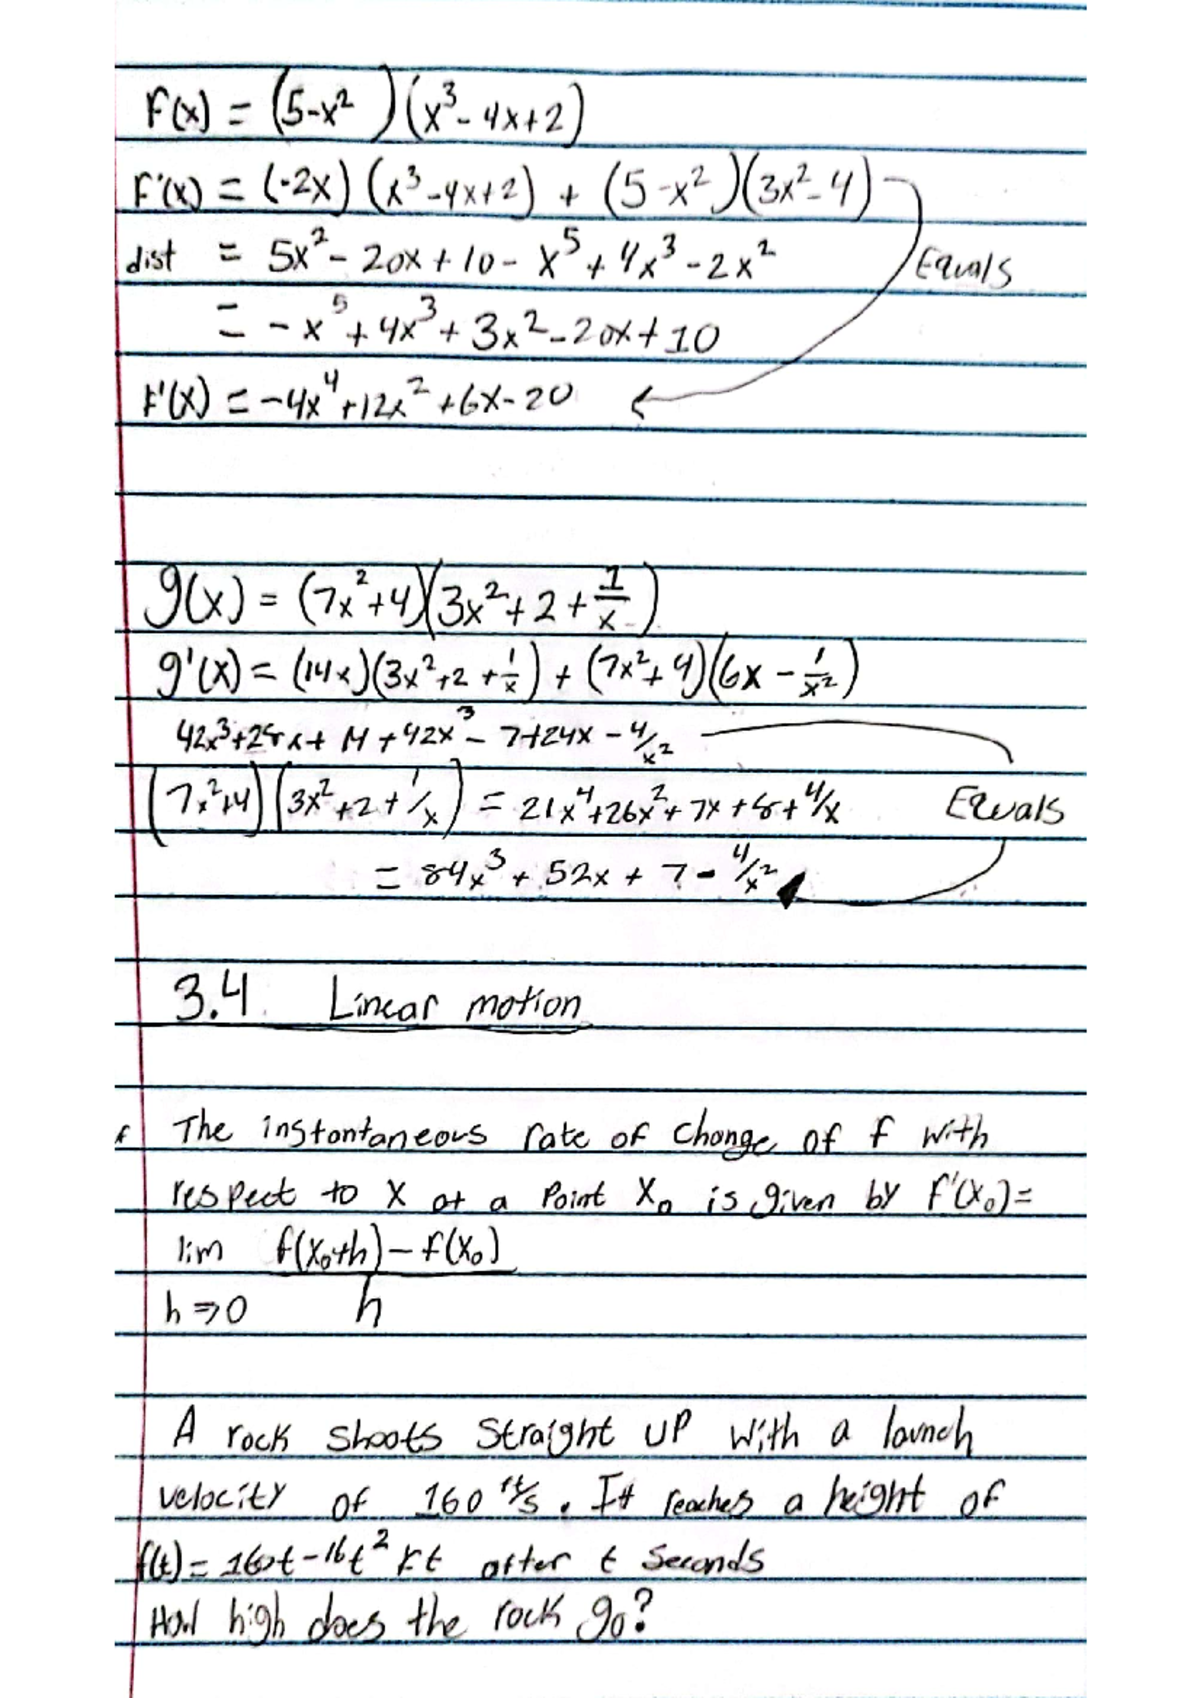 F(x) = (5-x²)(x³-4x+2)
F'(x) = (-2x)(x³-4x+2) + (5-x²)(3x²-4)
dist = 5x²-20x+10-x⁵+4x³-2x² Equals
= -x⁵+4x³+3x²-20x+10
F'(x) = -4x⁴+12x²+6x-20
g(x) = (7x²+4)(3x²+2+1/x)
g'(x) = (14x)(3x²+2+1/x) + (7x²+4)(6x-1/x²)
42x³+28x+14+42x³-7+24x-4/x²
(7x²+4)(3x²+2+1/x) = 21x⁴+26x²+7x+8+4/x Equals
= 84x³+52x+7-4/x²
3.4 Linear motion
The instantaneous rate of change of f with
respect to x at a point x₀ is given by F'(x₀)=
lim f(x₀+h)-f(x₀)
h⇒0 h
A rock shoots straight up with a launch
velocity of 160 ft/s. It reaches a height of
f(t)=160t-16t² ft after t seconds
How high does the rock go?